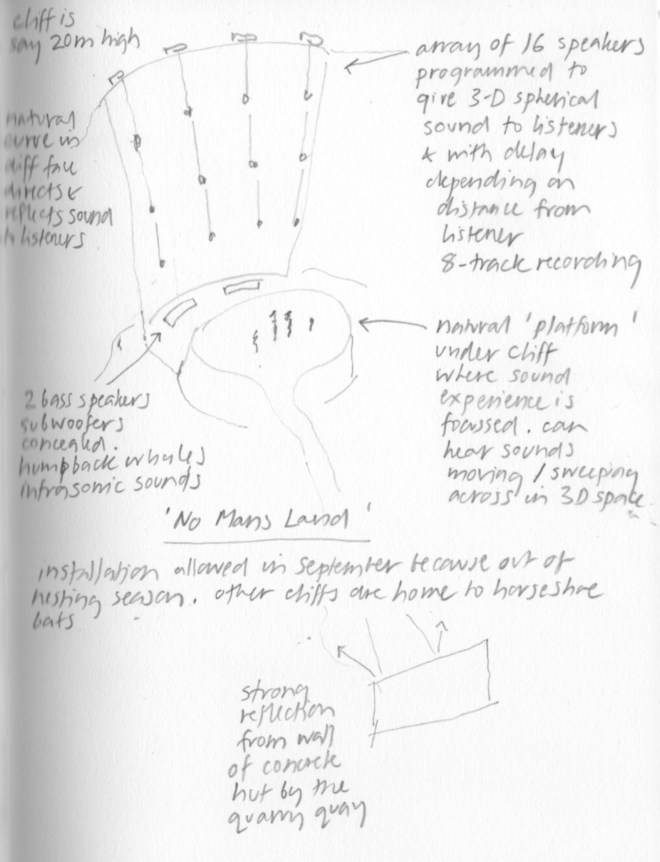 cliff is
say 20m high
array of 16 speakers
programmed to
give 3-D spherical
sound to listeners
& with delay
depending on
distance from
listener
8-track recording
natural
curve in
cliff face
directs &
reflects sound
to listeners
natural 'platform'
under cliff
where sound
experience is
focussed. can
hear sounds
moving / sweeping
across in 3D space
2 bass speakers
subwoofers
concealed.
humpback whales
infrasonic sounds
'No Mans Land'
installation allowed in September because out of
nesting season. other cliffs are home to horseshoe
bats
strong
reflection
from wall
of concrete
hut by the
quarry quay